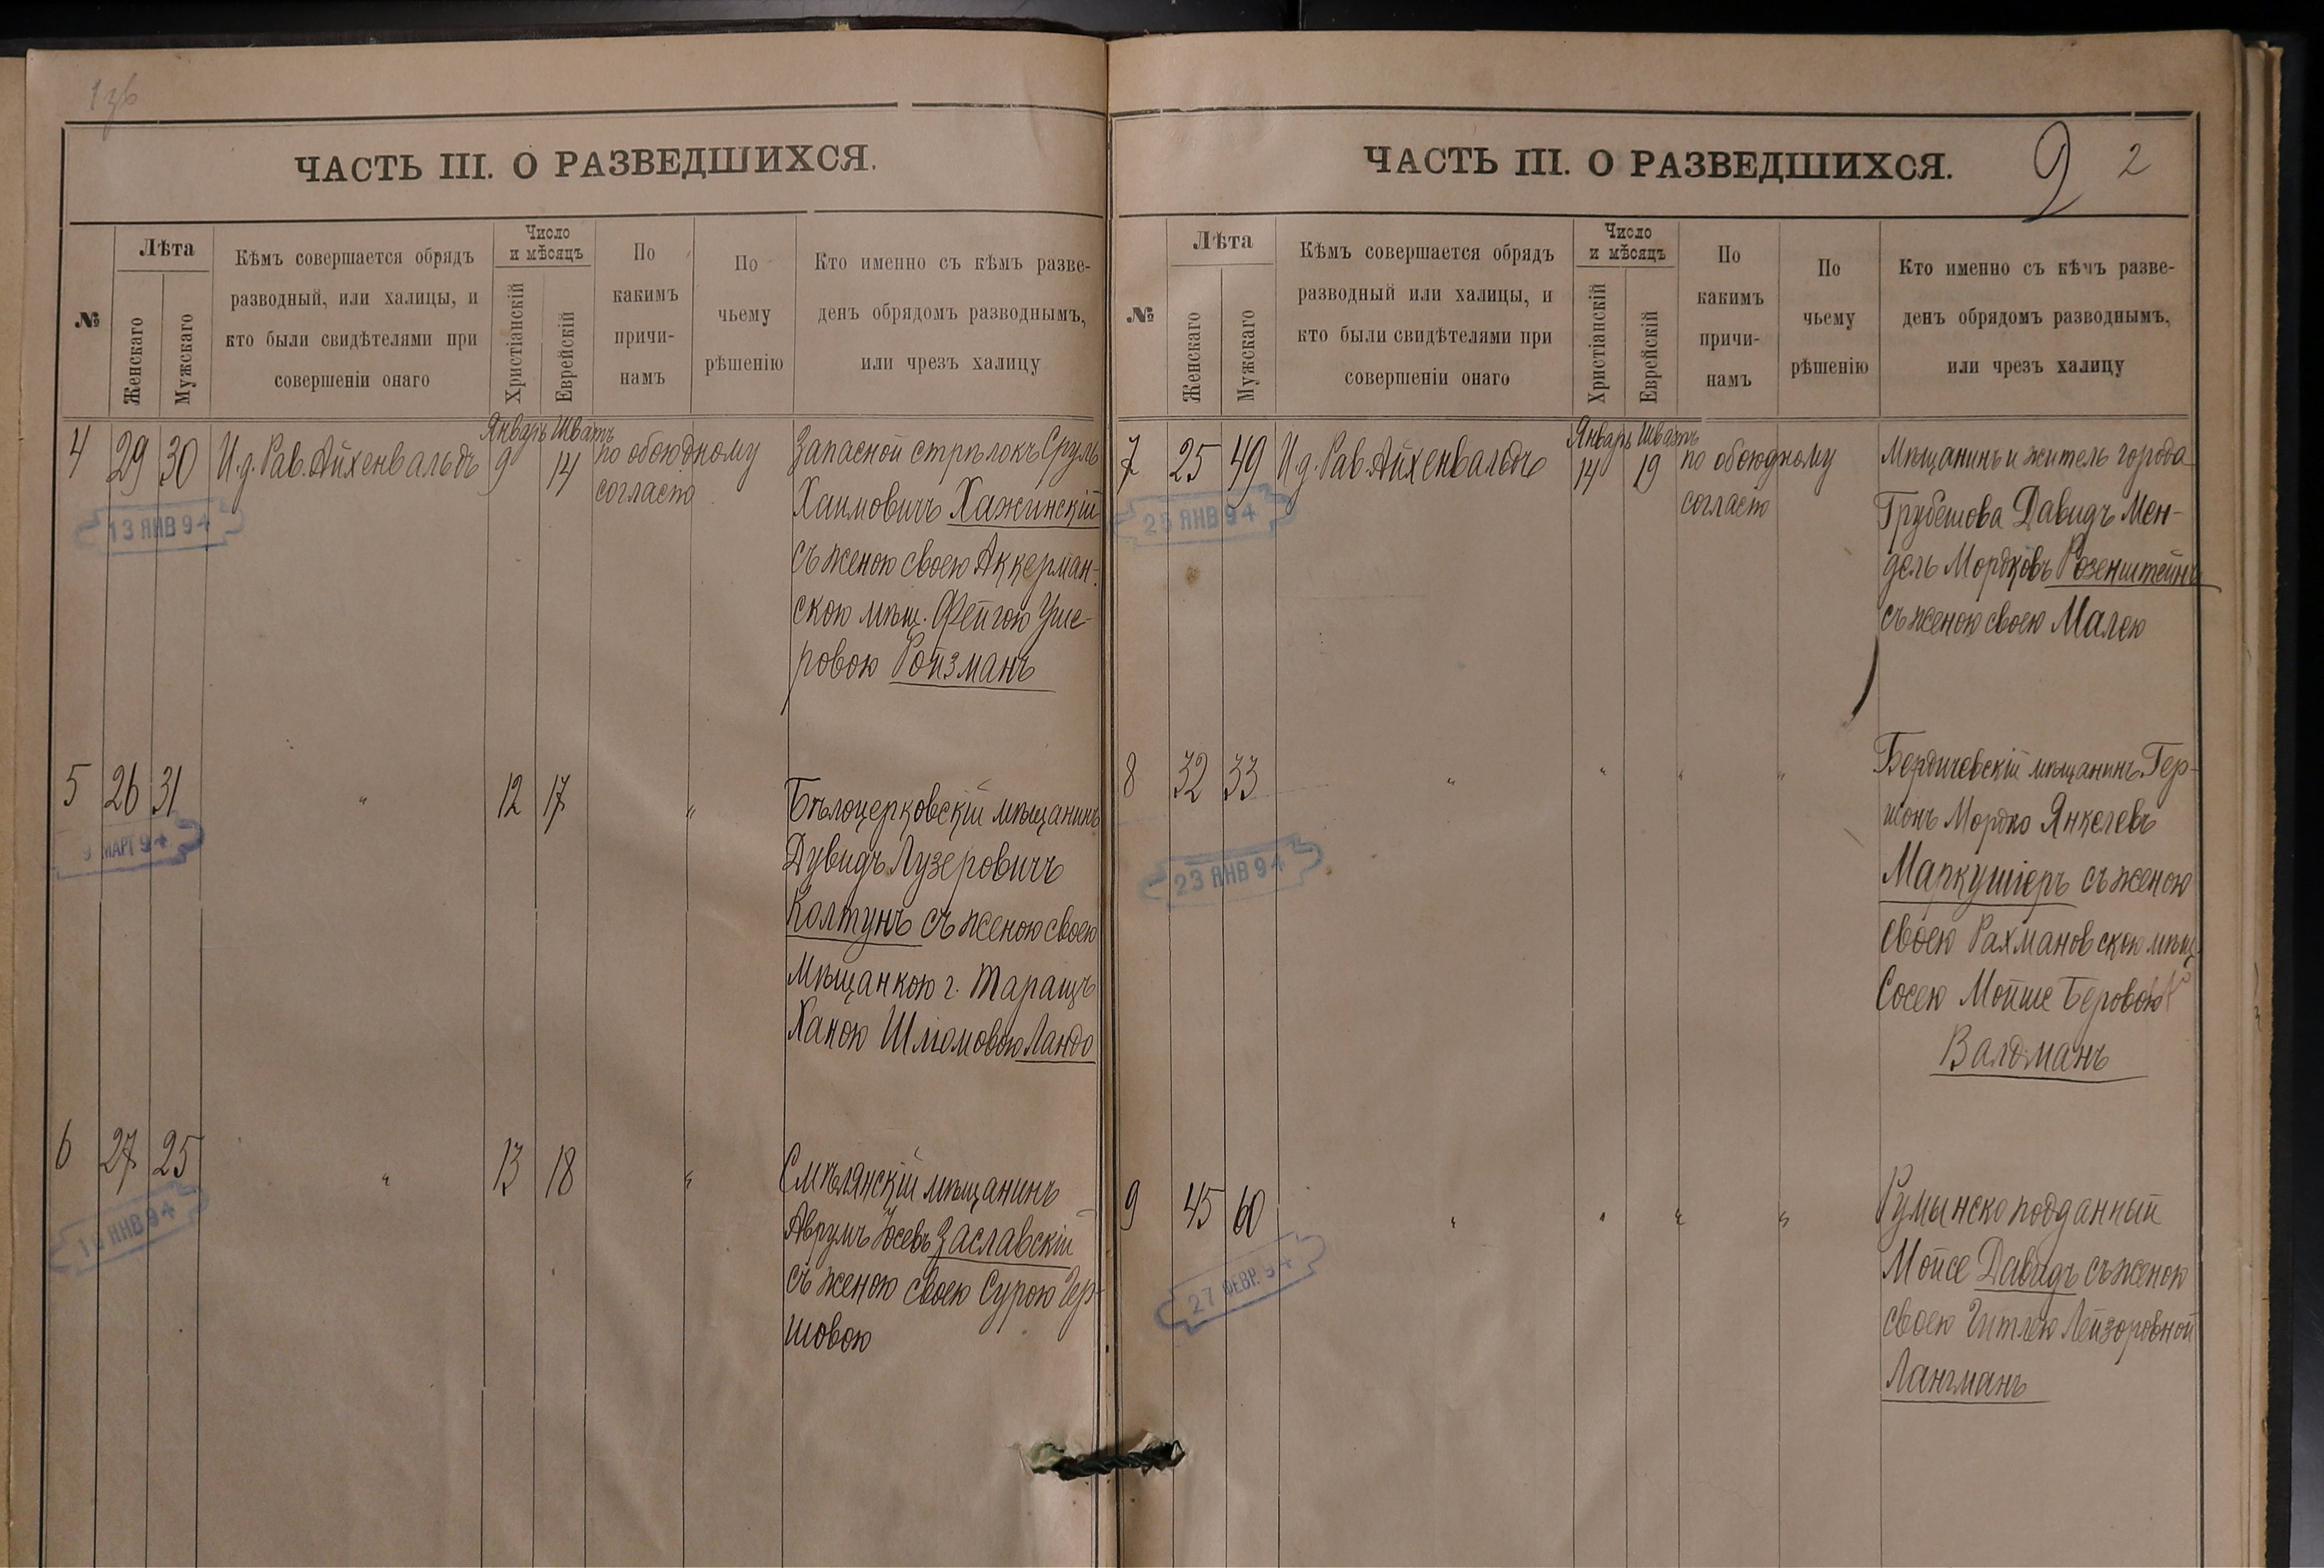 1зв
ЧАСТЬ III. О РАЗВЕДШИХСЯ.
№
Лѣта
Женскаго
Мужскаго
Кѣмъ совершается обрядъ
разводный, или халицы, и
кто были свидѣтелями при
совершеніи онаго
Число
и мѣсяцъ
Христіанскій
Еврейскій
По
какимъ
причи-
намъ
По
чьему
рѣшенію
Кто именно съ кѣмъ разве-
денъ обрядомъ разводнымъ,
или чрезъ халицу
Январь Шватъ
4 29 30 И.д. Рав. Айхенвальдъ 9 14 по обоюдному
согласію
Запасной стрѣлокъ Сруль
Хаимовичъ Хажинскій
съ женою своею Аккерман-
скою мѣщ. Фейгою Уше-
ровою Ройзманъ
13 ЯНВ 94
5 26 31 " 12 17 "
Бѣлоцерковскій мѣщанинъ
Дувидъ Лузеровичъ
Колтунъ съ женою своею
Мѣщанкою г. Таращъ
Ханою Шлiомовою Ландо
9 МАРТ 94
6 27 25 " 13 18 "
Смѣлянскій мѣщанинъ
Аврумъ Іосевъ Заславскій
съ женою своею Сурою Гер-
шовою
ЯНВ 94
ЧАСТЬ III. О РАЗВЕДШИХСЯ.
2 2
№
Лѣта
Женскаго
Мужскаго
Кѣмъ совершается обрядъ
разводный или халицы, и
кто были свидѣтелями при
совершеніи онаго
Число
и мѣсяцъ
Христіанскій
Еврейскій
По
какимъ
причи-
намъ
По
чьему
рѣшенію
Кто именно съ кѣмъ разве-
денъ обрядомъ разводнымъ,
или чрезъ халицу
Январь Шватъ
7 25 49 И.д. Рав. Айхенвальдъ 14 19 по обоюдному
согласію
Мѣщанинъ и житель города
Грубешова Давидъ Мен-
дель Мордковъ Розенштейнъ
съ женою своею Малею
25 ЯНВ 94
8 32 33 " " " "
Бердичевскій мѣщанинъ Гер-
шонъ Мордко Янкелевъ
Маркушіеръ съ женою
своею Рахмановскою мѣщ.
Сосею Мойше Беровою
Валдманъ
23 ЯНВ 94
9 45 60 " " " "
Румынско подданный
Мойсе Давидъ съ женою
своею Гитлею Лейзоровной
Лангманъ
27 ФЕВР. 94